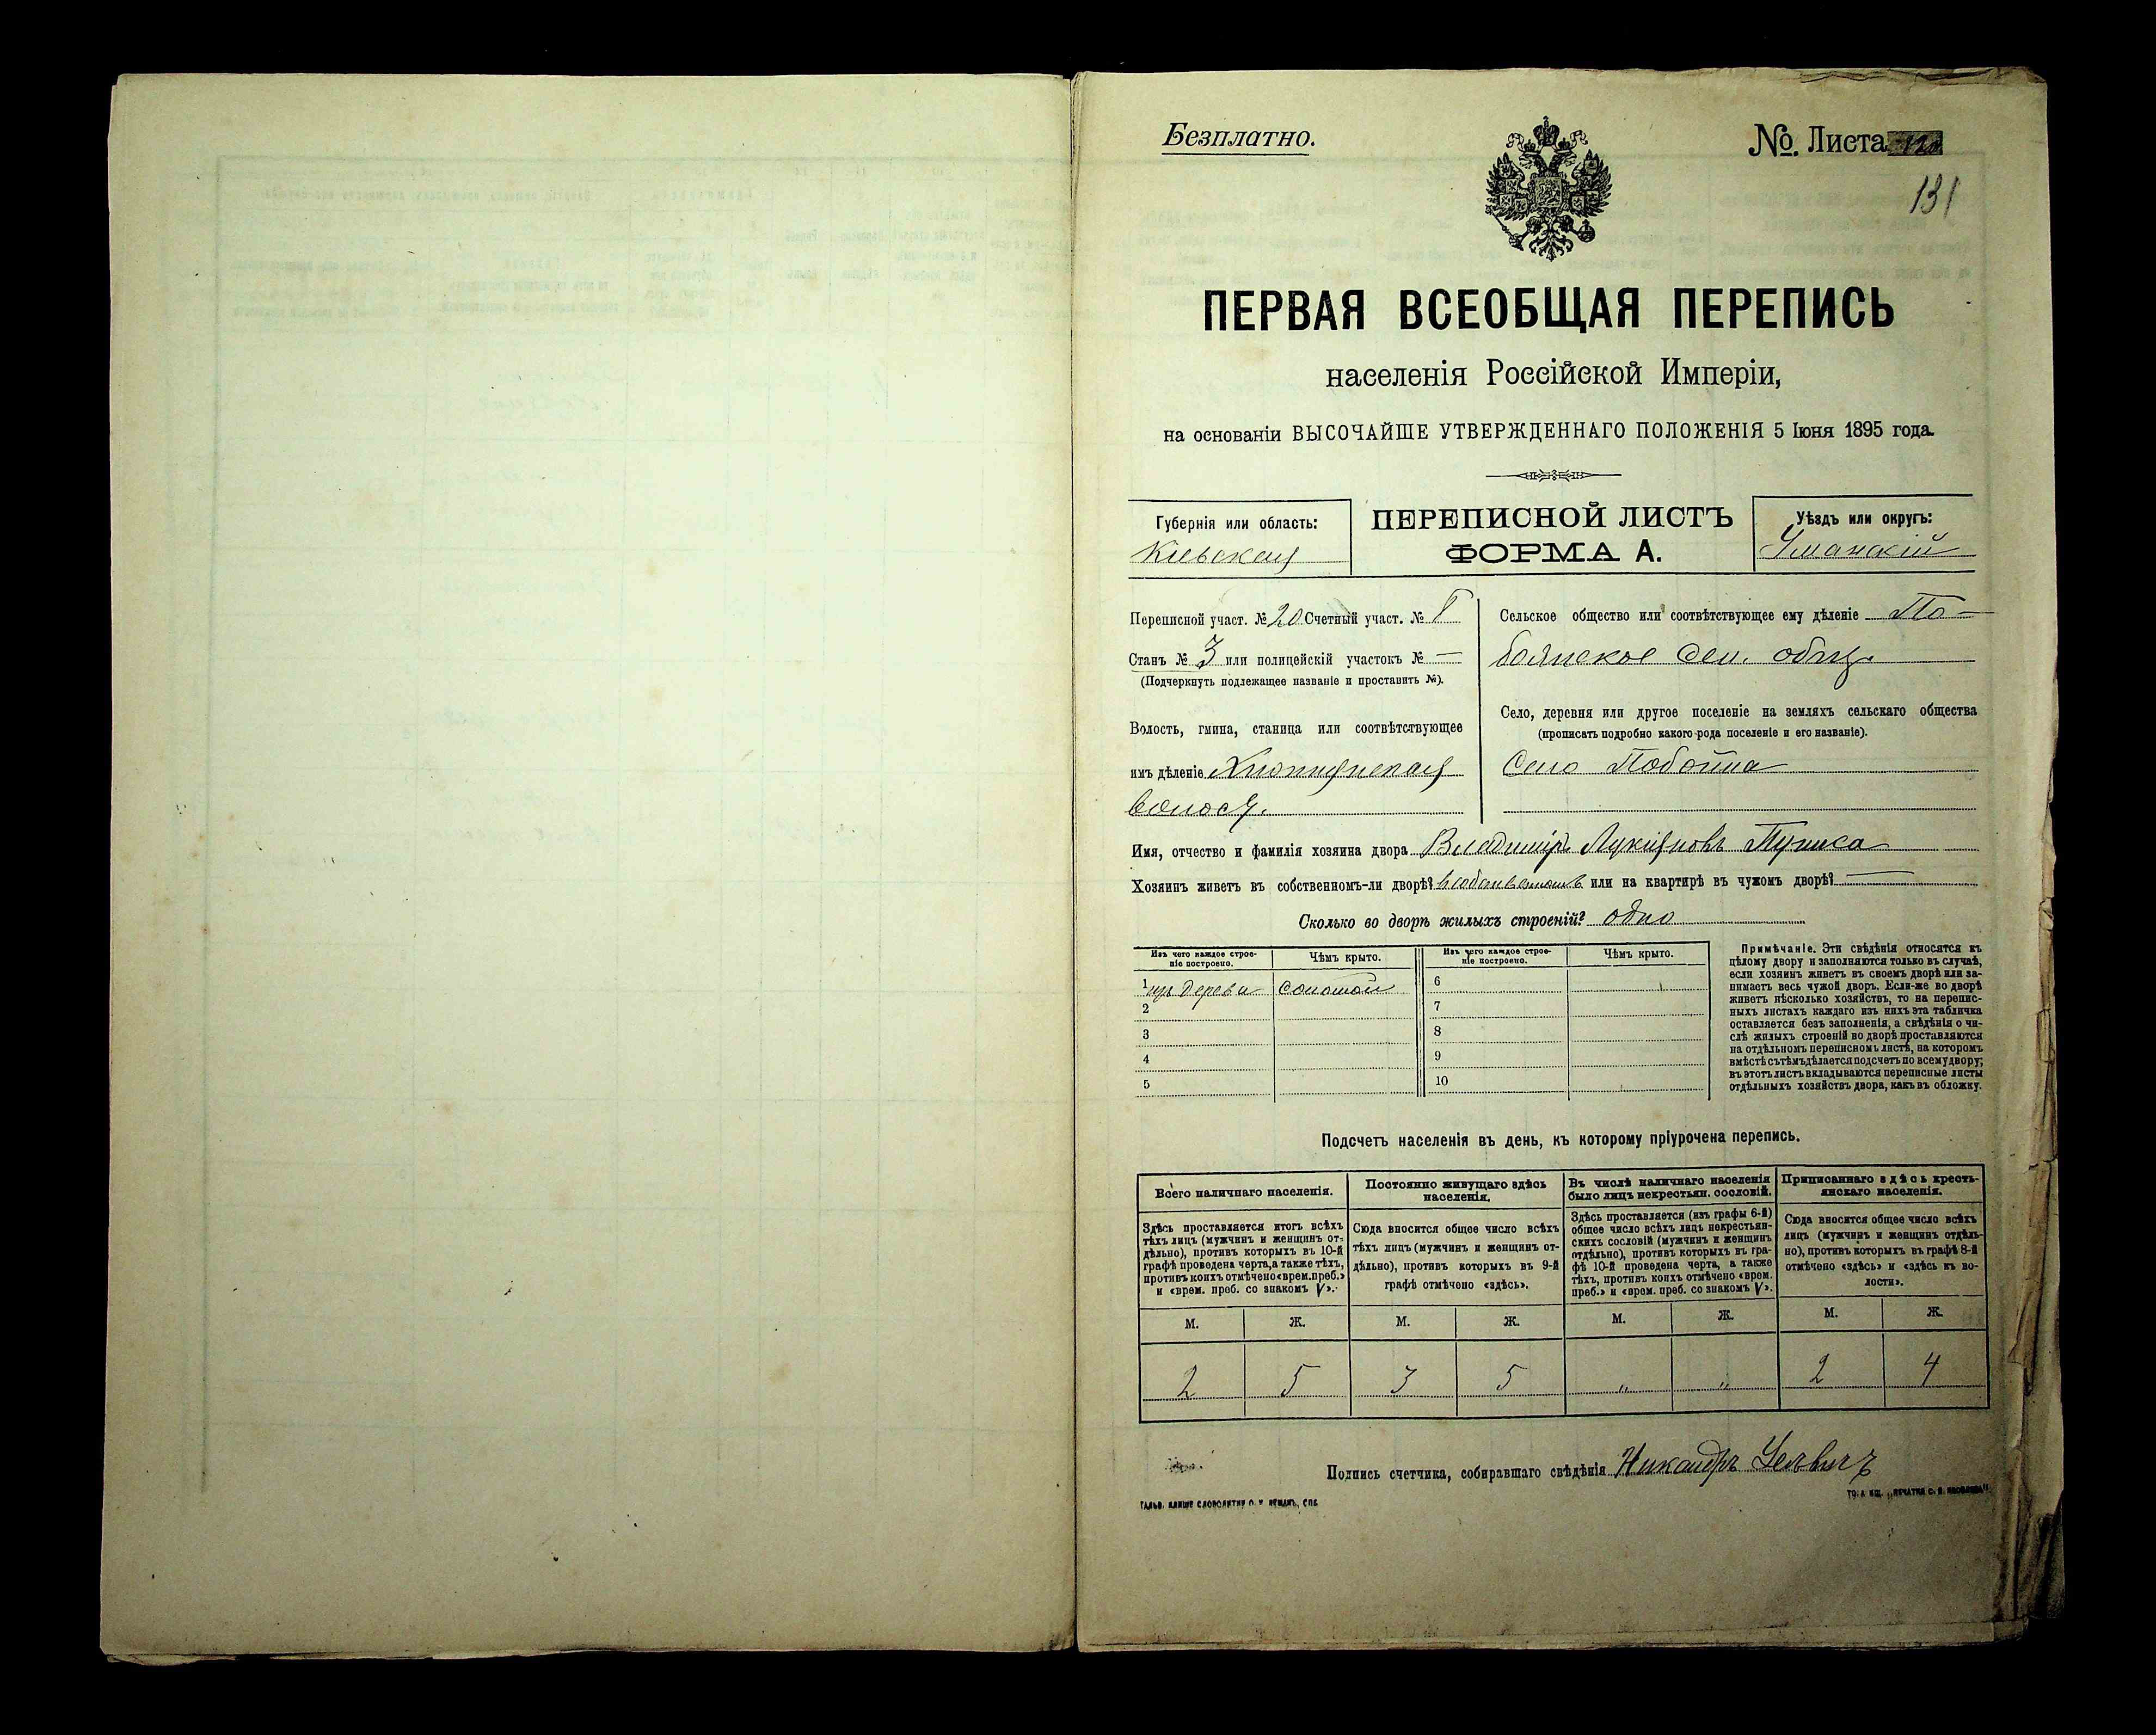 Безплатно.
№. Листа
131
ПЕРВАЯ ВСЕОБЩАЯ ПЕРЕПИСЬ
населенія Россійской Имперіи,
на основаніи ВЫСОЧАЙШЕ УТВЕРЖДЕННАГО ПОЛОЖЕНІЯ 5 Іюня 1895 года.
Губернія или область:
Кіевская
ПЕРЕПИСНОЙ ЛИСТЪ
ФОРМА А.
Уѣздъ или округъ:
Уманскій
Переписной участ. № 20 Счетный участ. №
Станъ № 3 или полицейскій участокъ № —
(Подчеркнуть подлежащее названіе и проставить №).
Волость, гмина, станица или соотвѣтствующее
имъ дѣленіе
волос.
Сельское общество или соотвѣтствующее ему дѣленіе По-
бойнское сел. общ.
Село, деревня или другое поселеніе на земляхъ сельскаго общества
(прописать подробно какого рода поселеніе и его названіе).
Село Побойна
Имя, отчество и фамилія хозяина двора Владиміръ Лукіяновъ
Хозяинъ живетъ въ собственномъ-ли дворѣ? или на квартирѣ въ чужомъ дворѣ? —
Сколько во дворѣ жилыхъ строеній? одно
Изъ чего каждое строе-
ніе построено.
Чѣмъ крыто.
Изъ чего каждое строе-
ніе построено.
Чѣмъ крыто.
1 изъ дерева соломой 6
2 7
3 8
4 9
5 10
Примѣчаніе. Эти свѣдѣнія относятся къ
цѣлому двору и заполняются только въ случаѣ,
если хозяинъ живетъ въ своемъ дворѣ или за-
нимаетъ весь чужой дворъ. Если-же во дворѣ
живетъ нѣсколько хозяйствъ, то на перепис-
ныхъ листахъ каждаго изъ нихъ эта табличка
оставляется безъ заполненія, а свѣдѣнія о чи-
слѣ жилыхъ строеній во дворѣ проставляются
на отдѣльномъ переписномъ листѣ, на которомъ
вмѣстѣ съ тѣмъ дѣлается подсчетъ по всему двору;
въ этотъ листъ вкладываются переписные листы
отдѣльныхъ хозяйствъ двора, какъ въ обложку.
Подсчетъ населенія въ день, къ которому пріурочена перепись.
Всего наличнаго населенія.
Здѣсь проставляется итогъ всѣхъ
тѣхъ лицъ (мужчинъ и женщинъ от-
дѣльно), противъ которыхъ въ 10-й
графѣ проведена черта, а также тѣхъ,
противъ коихъ отмѣчено «врем. преб.»
и «врем. преб. со знакомъ V».
Постоянно живущаго здѣсь
населенія.
Сюда вносится общее число всѣхъ
тѣхъ лицъ (мужчинъ и женщинъ от-
дѣльно), противъ которыхъ въ 9-й
графѣ отмѣчено «здѣсь».
Въ числѣ наличнаго населенія
было лицъ некрестьян. сословій.
Здѣсь проставляется (изъ графы 6-й)
общее число всѣхъ лицъ некрестьян-
скихъ сословій (мужчинъ и женщинъ
отдѣльно), противъ которыхъ въ гра-
фѣ 10-й проведена черта, а также
тѣхъ, противъ коихъ отмѣчено «врем.
преб.» и «врем. преб. со знакомъ V».
Приписаннаго здѣсь кресть-
янскаго населенія.
Сюда вносится общее число всѣхъ
лицъ (мужчинъ и женщинъ отдѣль-
но), противъ которыхъ въ графѣ 8-й
отмѣчено «здѣсь» и «здѣсь къ во-
лости».
М. Ж. М. Ж. М. Ж. М. Ж.
2 5 3 5 " " 2 4
Подпись счетчика, собиравшаго свѣдѣнія Никандръ